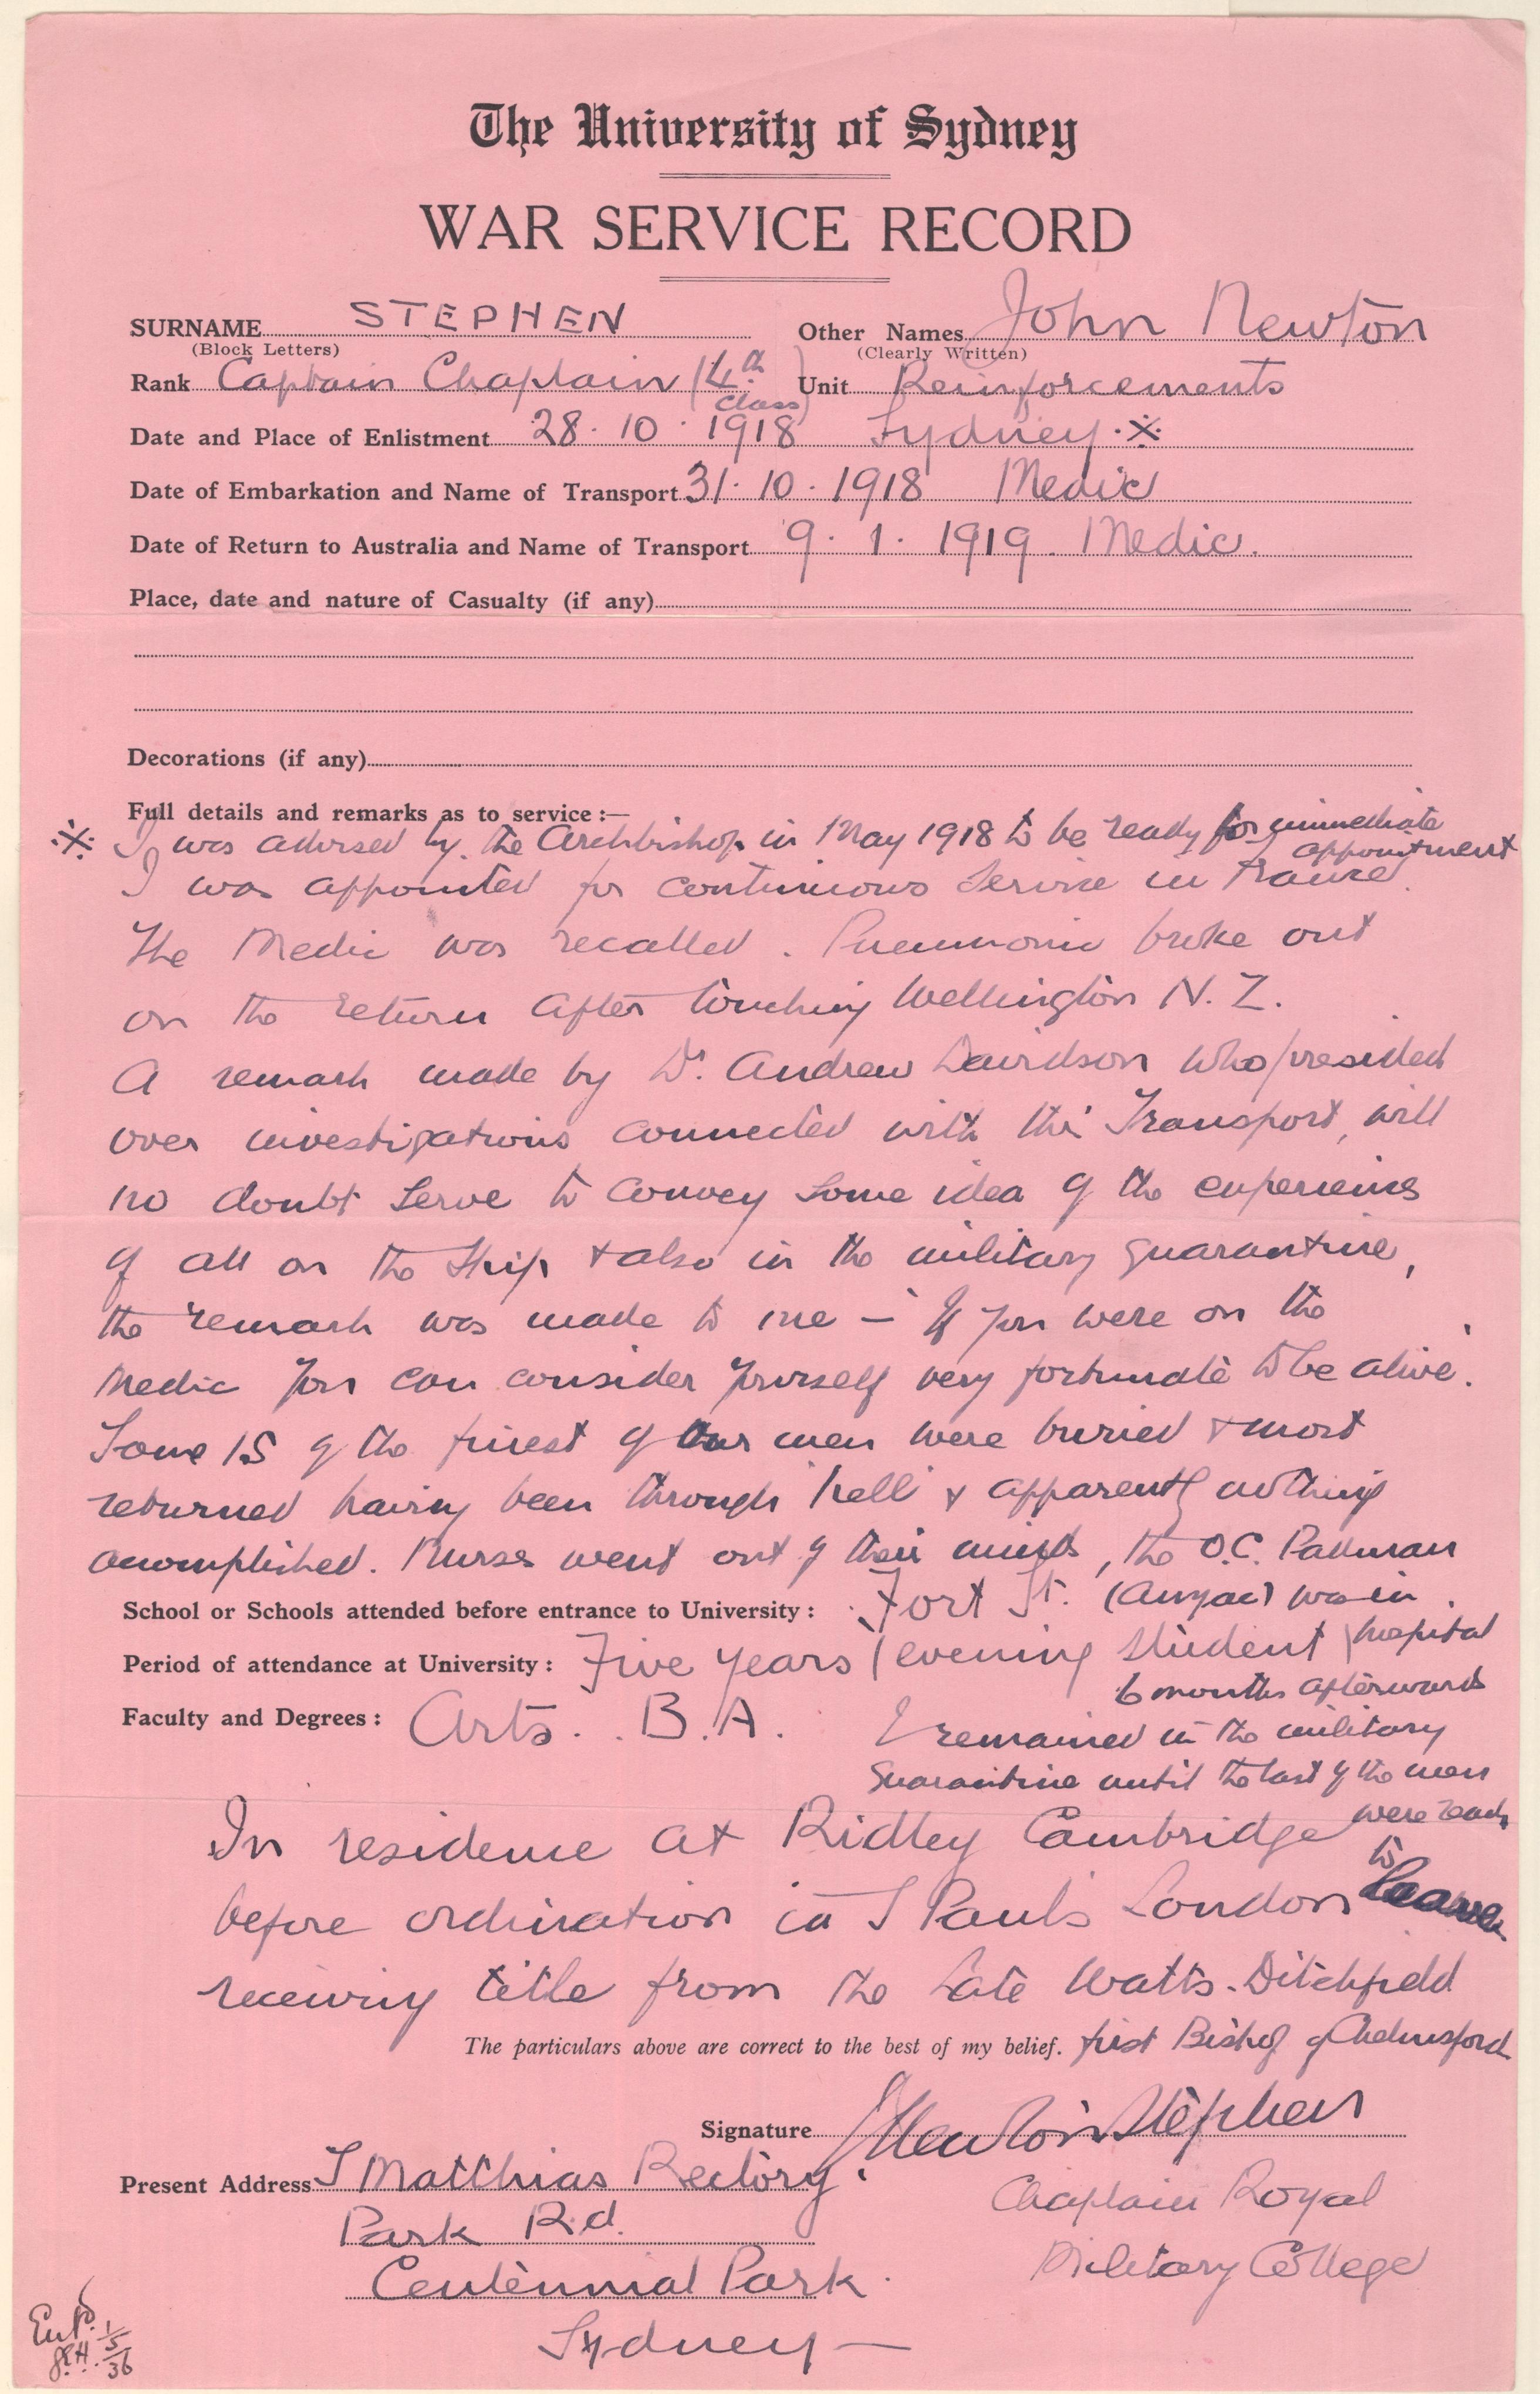 The University of Sydney
WAR SERVICE RECORD
SURNAME STEPHEN Other Names John Newton
(Block Letters) (Clearly Written)
Rank Captain Chaplain (4th class) Unit Reinforcements
Date and Place of Enlistment 28. 10. 1918 Sydney ※
Date of Embarkation and Name of Transport 31. 10. 1918 Medic
Date of Return to Australia and Name of Transport 9. 1. 1919. Medic.
Place, date and nature of Casualty (if any)
Decorations (if any)
Full details and remarks as to service :—
※ I was advised by the Archbishop in May 1918 to be ready for immediate appointment
I was appointed for continuous service in France.
The Medic was recalled. Pneumonia broke out
on the return after touching Wellington N. Z.
A remark made by Dr. Andrew Davidson who presided
over investigations connected with this Transport, will
no doubt serve to convey some idea of the experiences
of all on the ship & also in the military quarantine,
the remark was made to me – 'If you were on the
Medic you can consider yourself very fortunate to be alive'.
Some 15 of the finest of our men were buried & most
returned having been through 'hell' & apparently nothing
accomplished. Nurses went out of their minds, the O.C. Padman
School or Schools attended before entrance to University : Fort St. (Anzac) was in
Period of attendance at University : Five years (evening student) hospital
6 months afterwards
Faculty and Degrees : Arts. . B.A. I remained in the military
quarantine until the last of the men
were ready
to leave
In residence at Ridley Cambridge
before ordination in S Paul's London
receiving title from the late Watts-Ditchfield
The particulars above are correct to the best of my belief. first Bishop of Chelmsford
Signature J Newton Stephen
Present Address S Matthias Rectory. Chaplain Royal
Park Rd. Military College
Centennial Park.
Sydney —
Entd. 1/5/36